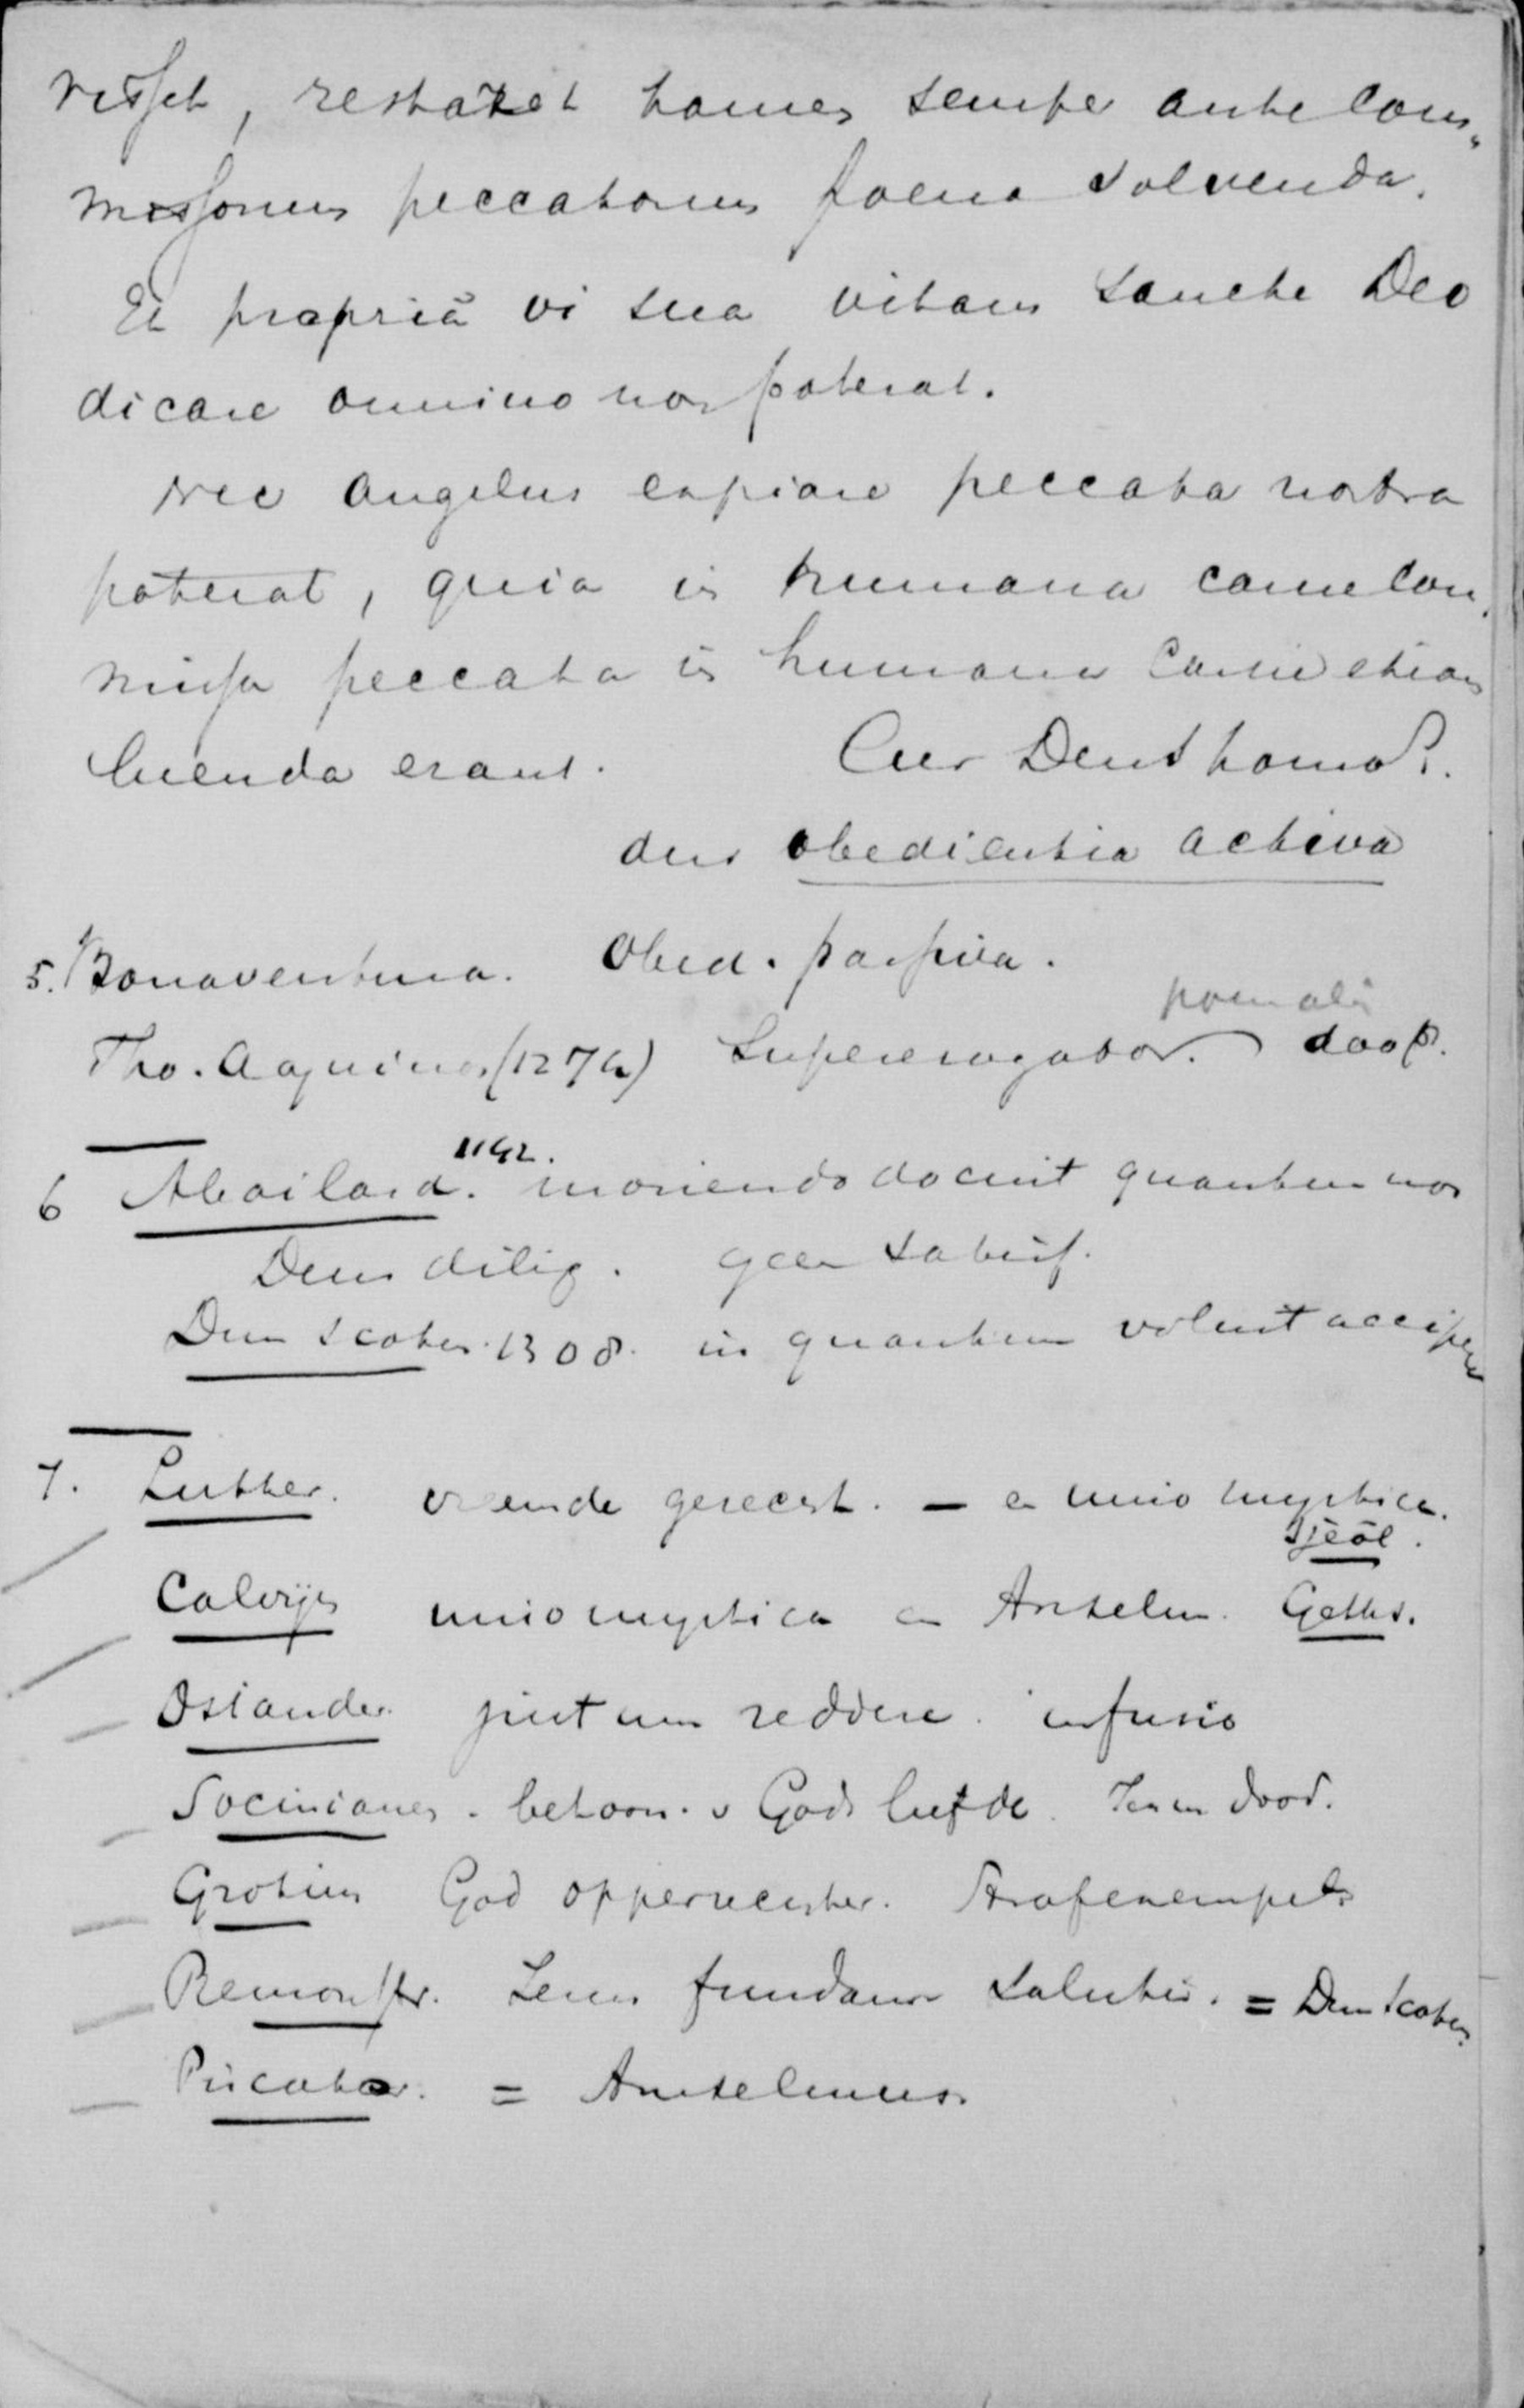 visset, restaret tamen semper ante com„
missorum peccatorum poena solvenda.
Et propriâ vi sua vitam sancte Deo
dicare omnino non poterat.
Nec angelus expiare peccata nostra
poterat, quia in humana carne com„
missa peccata in humana carne etiam
luenda erant. Cur Deus homo?.
dus obedientia activa
5. Bonaventura. Obed. passiva.
poenalis
Tho. Aquinas (1274) Supererogator. doop.
1142.
6 Abailard. moriendo docuit quantum nos
Deus dilig. geen satisf.
Duns Scotus. 1308. in quantum voluit accipere
7. Luther. vreemde gerecht. — en unio mystica.
Sjeôl.
Calvijn unio mystica en Anselm. Geths.
Osiander justum reddere. infusio
Socinianen. betoon. v Gods liefde. Jezus dood.
Grotius God opperrechter. Strafexempel
Remonstr. Jezus fundam salutis. = Duns Scotus
Piscator. = Anselmus.